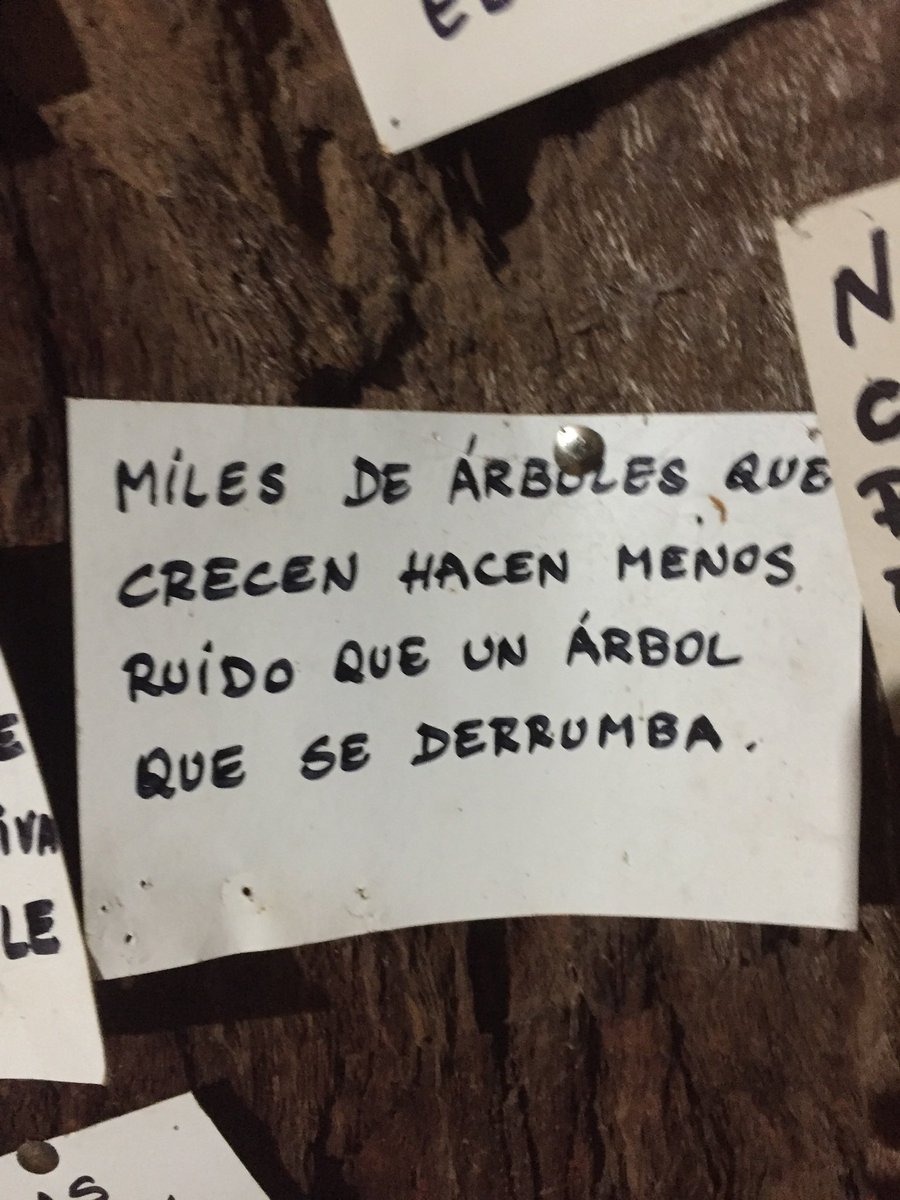 MILES DE ÁRBOLES QUE
CRECEN HACEN MENOS
RUIDO QUE UN ÁRBOL
QUE SE DERRUMBA.